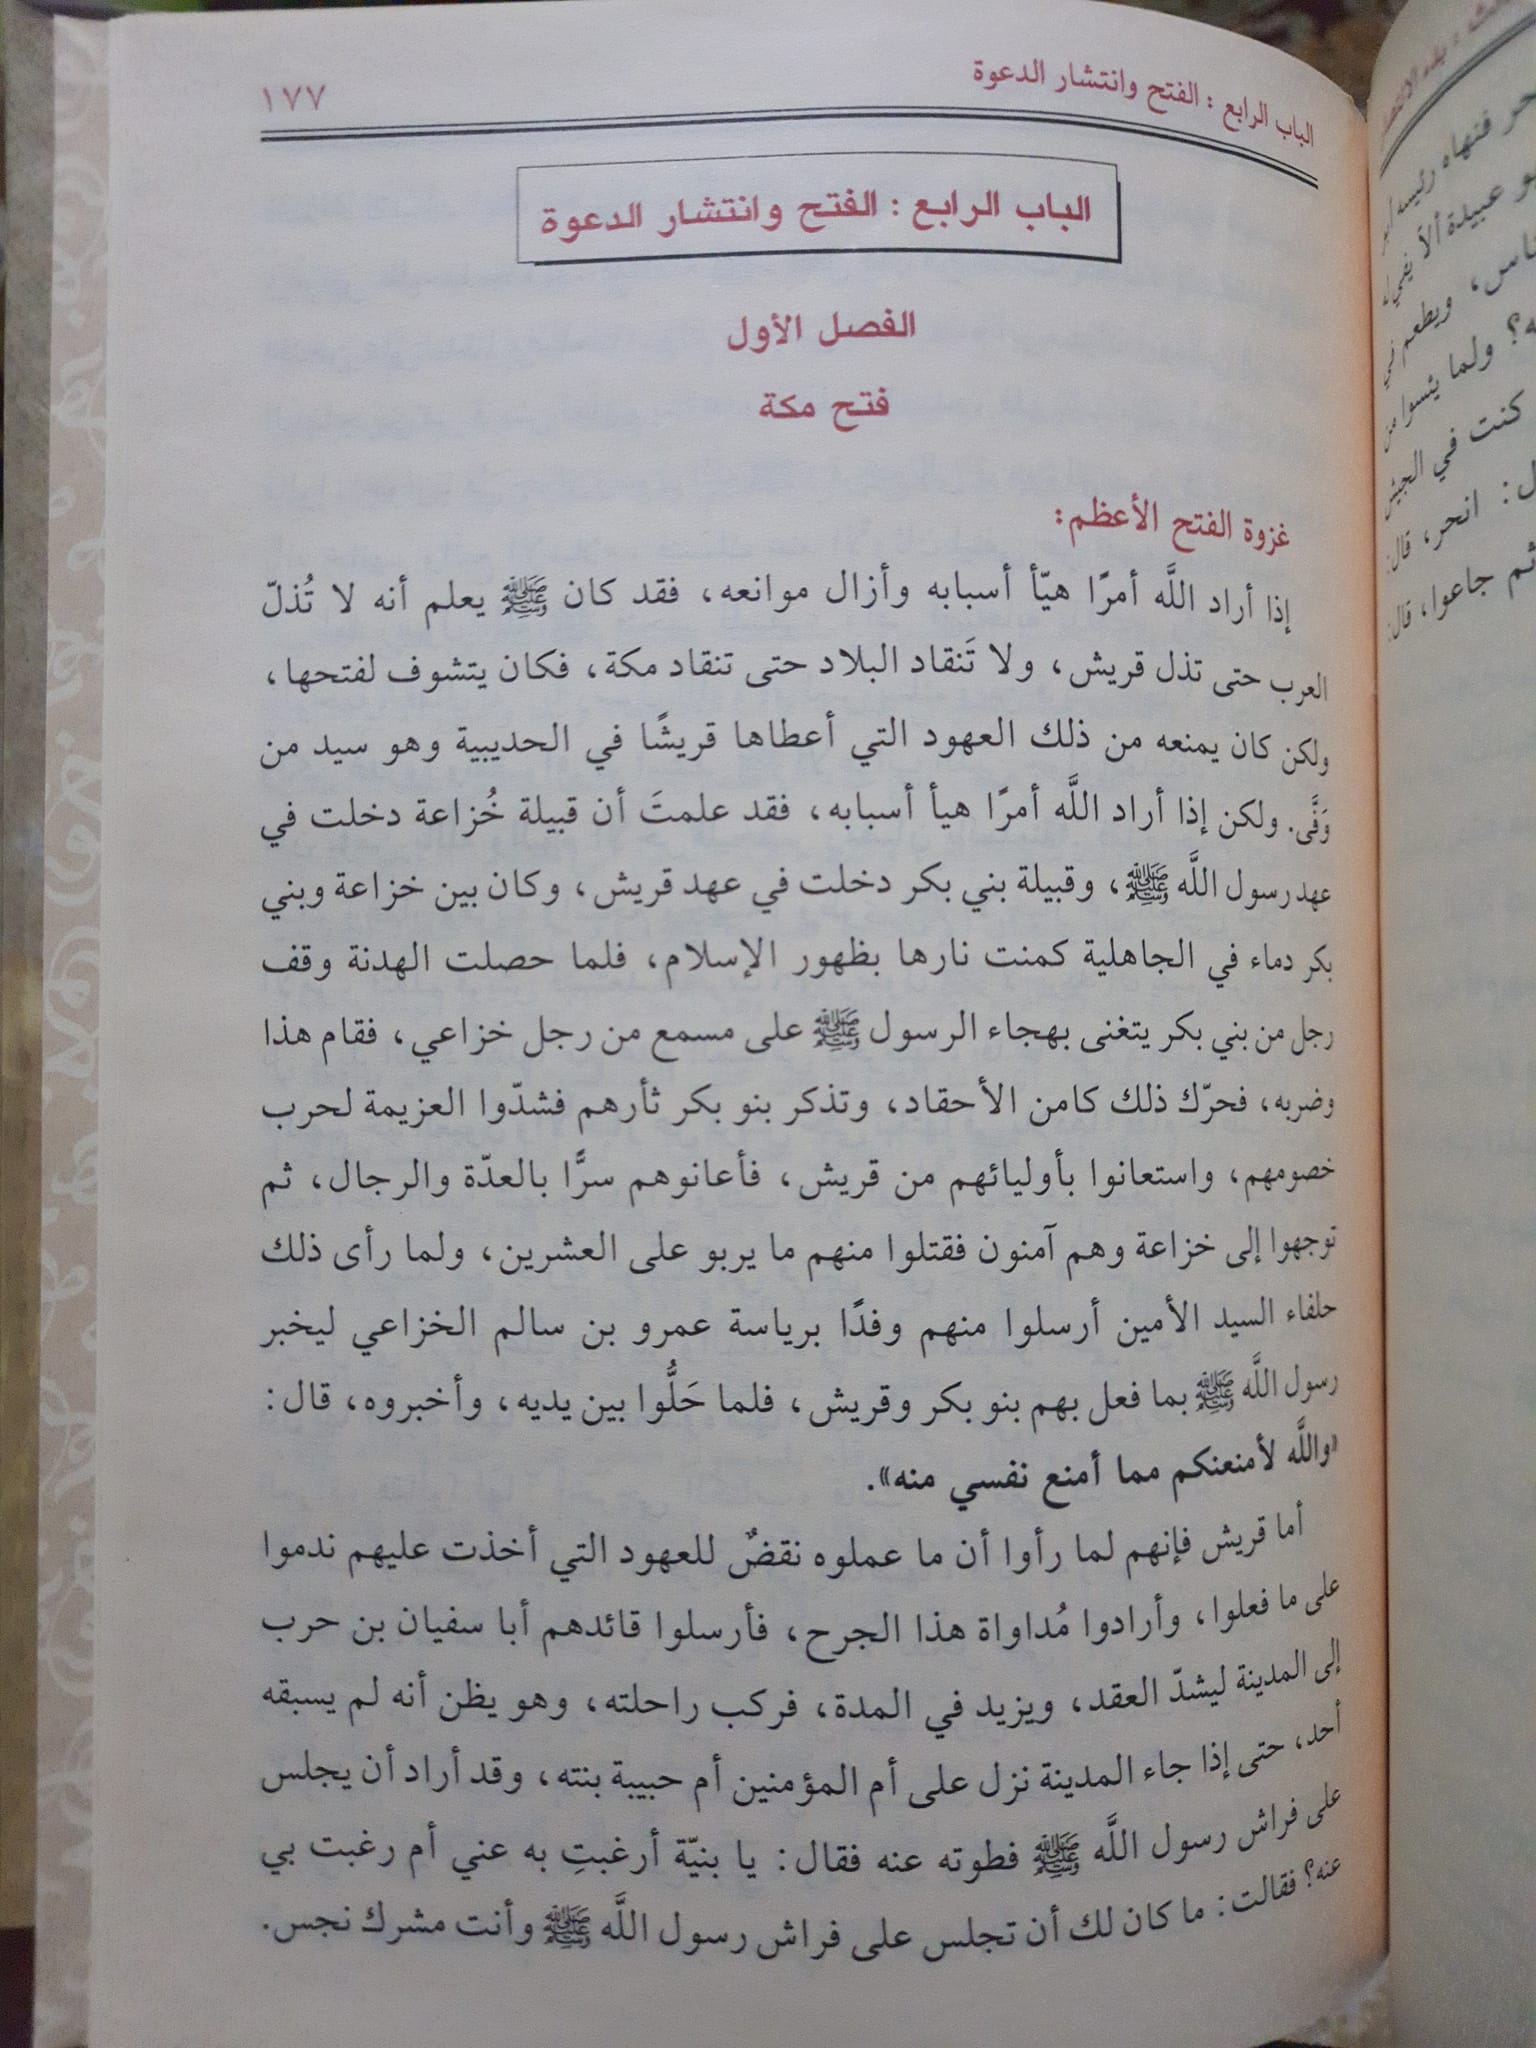 الباب الرابع : الفتح وانتشار الدعوة
١٧٧
الباب الرابع : الفتح وانتشار الدعوة
الفصل الأول
فتح مكة
غزوة الفتح الأعظم:
إذا أراد اللَّه أمرًا هيّأ أسبابه وأزال موانعه، فقد كان ﷺ يعلم أنه لا تُذلّ
العرب حتى تذل قريش، ولا تَنقاد البلاد حتى تنقاد مكة، فكان يتشوف لفتحها،
ولكن كان يمنعه من ذلك العهود التي أعطاها قريشًا في الحديبية وهو سيد من
وَفَّى. ولكن إذا أراد اللَّه أمرًا هيأ أسبابه، فقد علمتَ أن قبيلة خُزاعة دخلت في
عهد رسول اللَّه ﷺ، وقبيلة بني بكر دخلت في عهد قريش، وكان بين خزاعة وبني
بكر دماء في الجاهلية كمنت نارها بظهور الإسلام، فلما حصلت الهدنة وقف
رجل من بني بكر يتغنى بهجاء الرسول ﷺ على مسمع من رجل خزاعي، فقام هذا
وضربه، فحرّك ذلك كامن الأحقاد، وتذكر بنو بكر ثأرهم فشدّوا العزيمة لحرب
خصومهم، واستعانوا بأوليائهم من قريش، فأعانوهم سرًّا بالعدّة والرجال، ثم
توجهوا إلى خزاعة وهم آمنون فقتلوا منهم ما يربو على العشرين، ولما رأى ذلك
حلفاء السيد الأمين أرسلوا منهم وفدًا برياسة عمرو بن سالم الخزاعي ليخبر
رسول اللَّه ﷺ بما فعل بهم بنو بكر وقريش، فلما حَلُّوا بين يديه، وأخبروه، قال:
«واللَّه لأمنعنكم مما أمنع نفسي منه».
أما قريش فإنهم لما رأوا أن ما عملوه نقضٌ للعهود التي أخذت عليهم ندموا
على ما فعلوا، وأرادوا مُداواة هذا الجرح، فأرسلوا قائدهم أبا سفيان بن حرب
إلى المدينة ليشدّ العقد، ويزيد في المدة، فركب راحلته، وهو يظن أنه لم يسبقه
أحد، حتى إذا جاء المدينة نزل على أم المؤمنين أم حبيبة بنته، وقد أراد أن يجلس
على فراش رسول اللَّه ﷺ فطوته عنه فقال: يا بنيّة أرغبتِ به عني أم رغبت بي
عنه؟ فقالت: ما كان لك أن تجلس على فراش رسول اللَّه ﷺ وأنت مشرك نجس.
حر فنهاه رئيسه
عبيدة ألا
ويطعم في
ولما يئسوا من
كنت في الجيش
انحر، قال:
ثم جاعوا، قال: